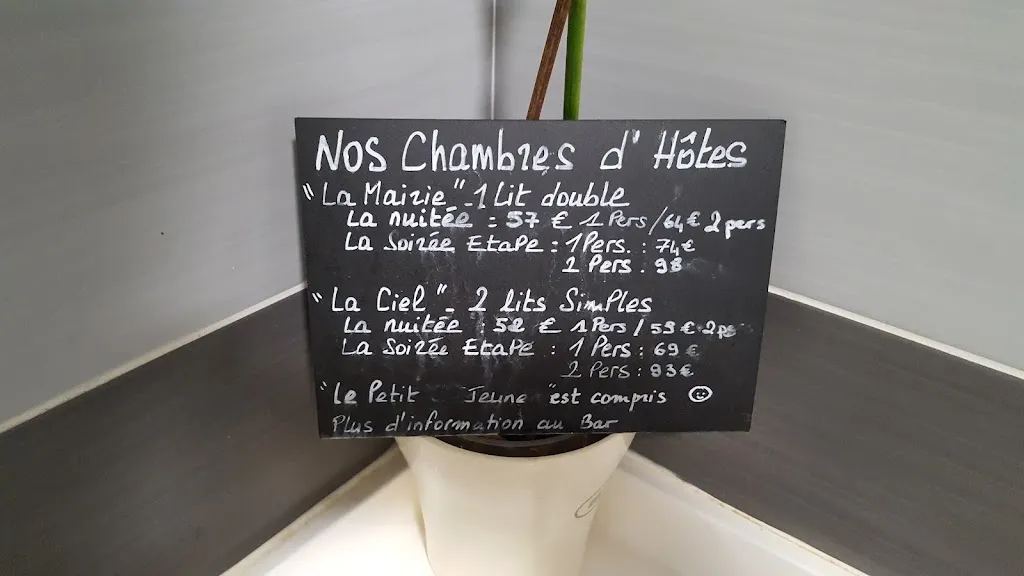 Nos Chambres d'Hôtes
"La Mairie" - 1 Lit double
La nuitée : 57 € 1 Pers / 64 € 2 pers
La Soirée Etape : 1 Pers. : 74 €
2 Pers : 98
"La Ciel" - 2 Lits Simples
La nuitée : 52 € 1 Pers / 59 € 2 pe
La Soirée Etape : 1 Pers : 69 €
2 Pers : 93 €
"Le Petit Jeune" est compris
Plus d'information au Bar